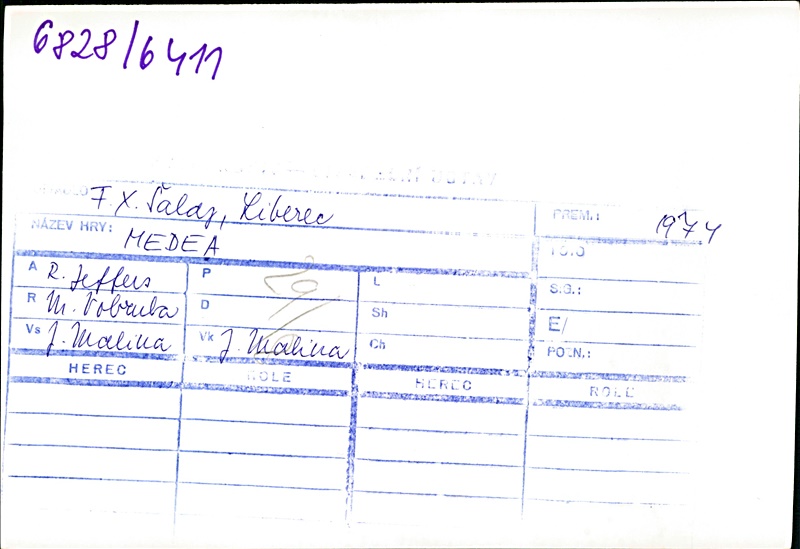 6828/6411
F. X. Šaldy, Liberec
PREM.: 1974
NÁZEV HRY: MEDEA
FOTO
A R. Jeffers P L S.G.:
R M. Vobruba D Sh E/
Vs J. Malina Vk J. Malina Ch POZN.:
HEREC ROLE HEREC ROLE